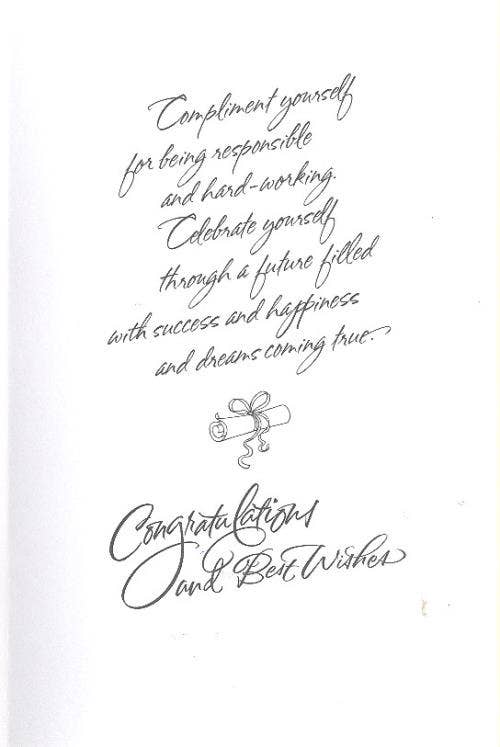 Compliment yourself
for being responsible
and hard-working.
Celebrate yourself
through a future filled
with success and happiness
and dreams coming true.
Congratulations
and Best Wishes